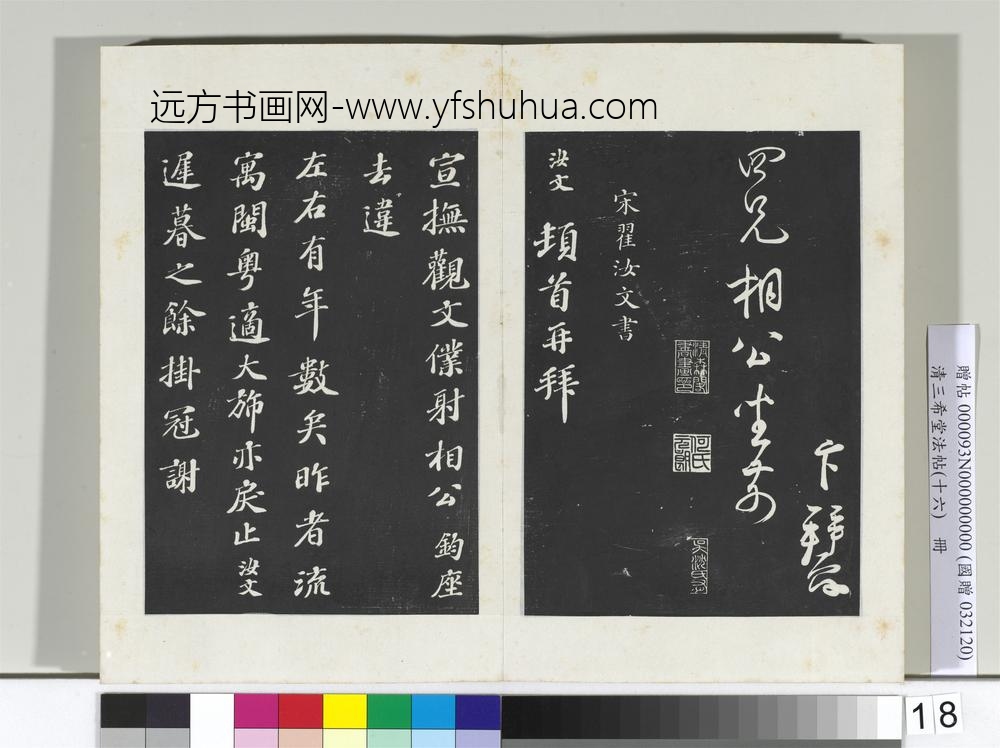 远方书画网-www.yfshuhua.com
卞拜
四兄相公坐前
宋翟汝文書
汝文頓首再拜
宣撫觀文僕射相公鈞座
去違
左右有年數矣昨者流
寓閩粤適大旆亦戾止汝文
遲暮之餘掛冠謝
贈帖 000093N000000000 (國贈 032120)
清三希堂法帖(十六) 冊
18